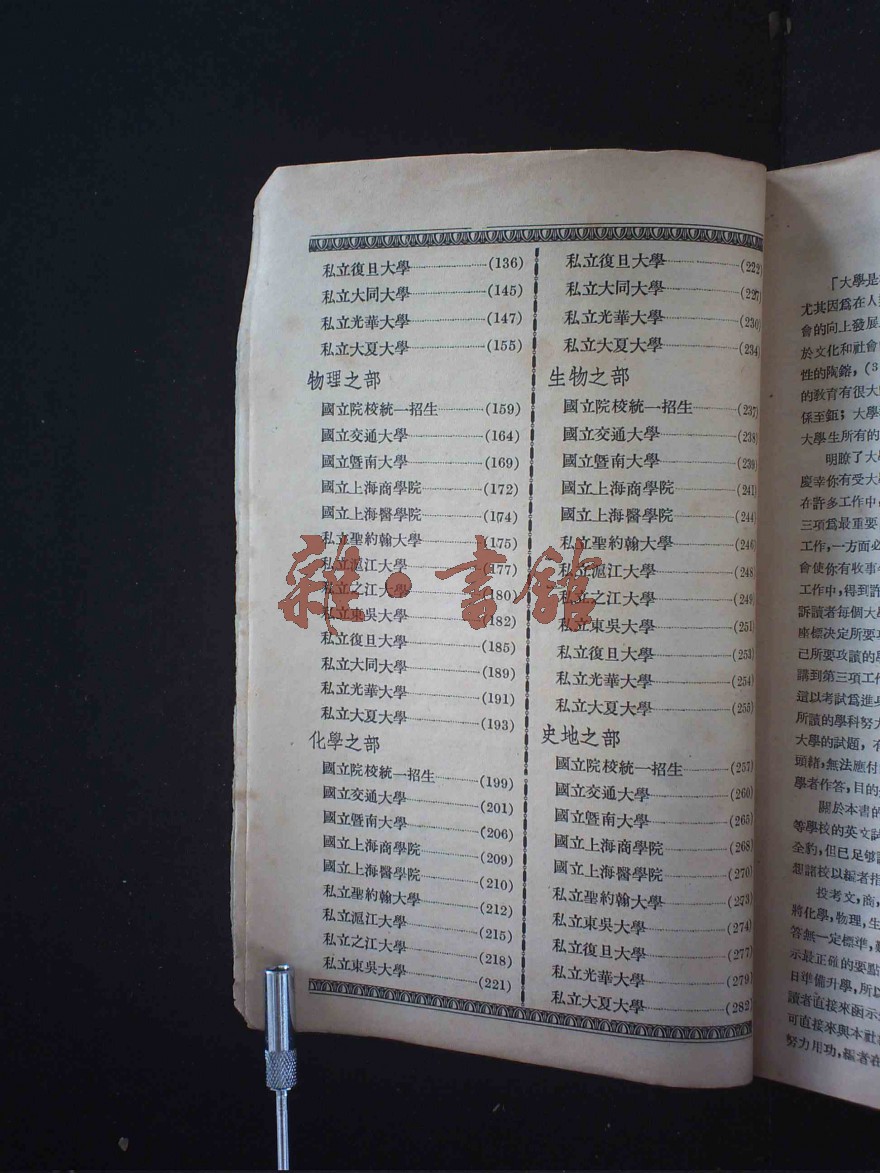 私立復旦大學(136)
私立大同大學(145)
私立光華大學(147)
私立大夏大學(155)
物理之部
國立院校統一招生(159)
國立交通大學(164)
國立暨南大學(169)
國立上海商學院(172)
國立上海醫學院(174)
私立聖約翰大學(175)
私立滬江大學(177)
私立之江大學(180)
私立東吳大學(182)
私立復旦大學(185)
私立大同大學(189)
私立光華大學(191)
私立大夏大學(193)
化學之部
國立院校統一招生(199)
國立交通大學(201)
國立暨南大學(206)
國立上海商學院(209)
國立上海醫學院(210)
私立聖約翰大學(212)
私立滬江大學(215)
私立之江大學(218)
私立東吳大學(221)
私立復旦大學(222)
私立大同大學(227)
私立光華大學(230)
私立大夏大學(234)
生物之部
國立院校統一招生(237)
國立交通大學(238)
國立暨南大學(239)
國立上海商學院(241)
國立上海醫學院(244)
私立聖約翰大學(246)
私立滬江大學(248)
私立之江大學(249)
私立東吳大學(251)
私立復旦大學(253)
私立光華大學(254)
私立大夏大學(255)
史地之部
國立院校統一招生(257)
國立交通大學(260)
國立暨南大學(265)
國立上海商學院(268)
國立上海醫學院(270)
私立聖約翰大學(273)
私立東吳大學(274)
私立復旦大學(277)
私立光華大學(279)
私立大夏大學(282)
雜·書館
「大學是
尤其因爲在人
會的向上發展
於文化和社會
性的陶鎔，(3
的教育有很大
係至鉅；大學
大學生所有的
明瞭了大
慶幸你有受大
在許多工作中
三項爲最重要
工作，一方面必
會使你有收事
工作中，得到許
訴讀者每個大
座標決定所要
已所要攻讀的
講到第三項工
還以考試爲進
所讀的學科努
大學的試題，
頭緒，無法應付
學者作答，目的
關於本書的
等學校的英文試
全豹，但已足够
想諸校以編者指
投考文，商，
將化學，物理，生
答無一定標準，
示最正確的要點
日準備升學，所以
讀者直接來函示
可直接來與本社
努力用功，編者在